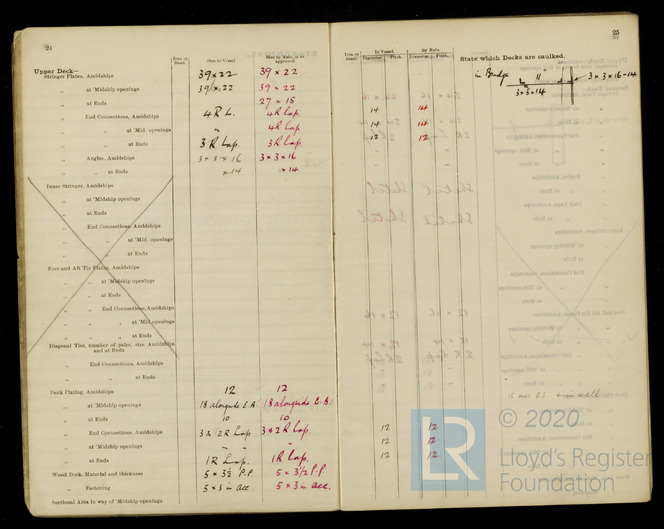 24
Iron or Steel.
Size in Vessel.
Size by Rule, or as approved.
Upper Deck—
Stringer Plates, Amidships 39 × 22 39 × 22
„ at 'Midship openings 39 × 22 39 × 22
„ at Ends 27 × 15
End Connections, Amidships 4 R L. 4 R Lap.
„ „ at 'Mid. openings „ 4 R Lap
„ „ at Ends 3 R Lap. 3 R Lap.
„ Angles, Amidships 3 × 3 × 16 3 × 3 × 16
„ „ at Ends × 14 × 14
Inner Stringer, Amidships
„ at 'Midship openings
„ at Ends
„ End Connections, Amidships
„ „ at 'Mid. openings
„ „ at Ends
Fore and Aft Tie Plates, Amidships
„ at 'Midship openings
„ at Ends
„ End Connections, Amidships
„ „ at 'Mid. openings
„ „ at Ends
Diagonal Ties, number of pairs, size Amidships
and at Ends
„ End Connections, Amidships
„ „ at Ends
Deck Plating, Amidships 12 12
„ at 'Midship openings 18 alongside E.A. 18 alongside E.A.
„ at Ends 10 10
„ End Connections, Amidships 3 & 2 R Lap 3 & 2 R Lap.
„ „ at 'Midship openings „ „
„ „ at Ends 1 R Lap. 1 R Lap.
Wood Deck, Material and thickness 5 × 3½ P.P. 5 × 3½ P.P.
„ Fastening 5 × 3 in acc. 5 × 3 in acc.
Sectional Area in way of 'Midship openings
25
Iron or Steel.
In Vessel.
By Rule.
Diameter. Pitch. Diameter. Pitch.
State which Decks are caulked.
in Bridge 11 3 × 3 × 16-14
3 × 3 × 14
14 14
14 14
12 12
12 12
12 12
12 12
© 2020
LR
Lloyd's Register
Foundation